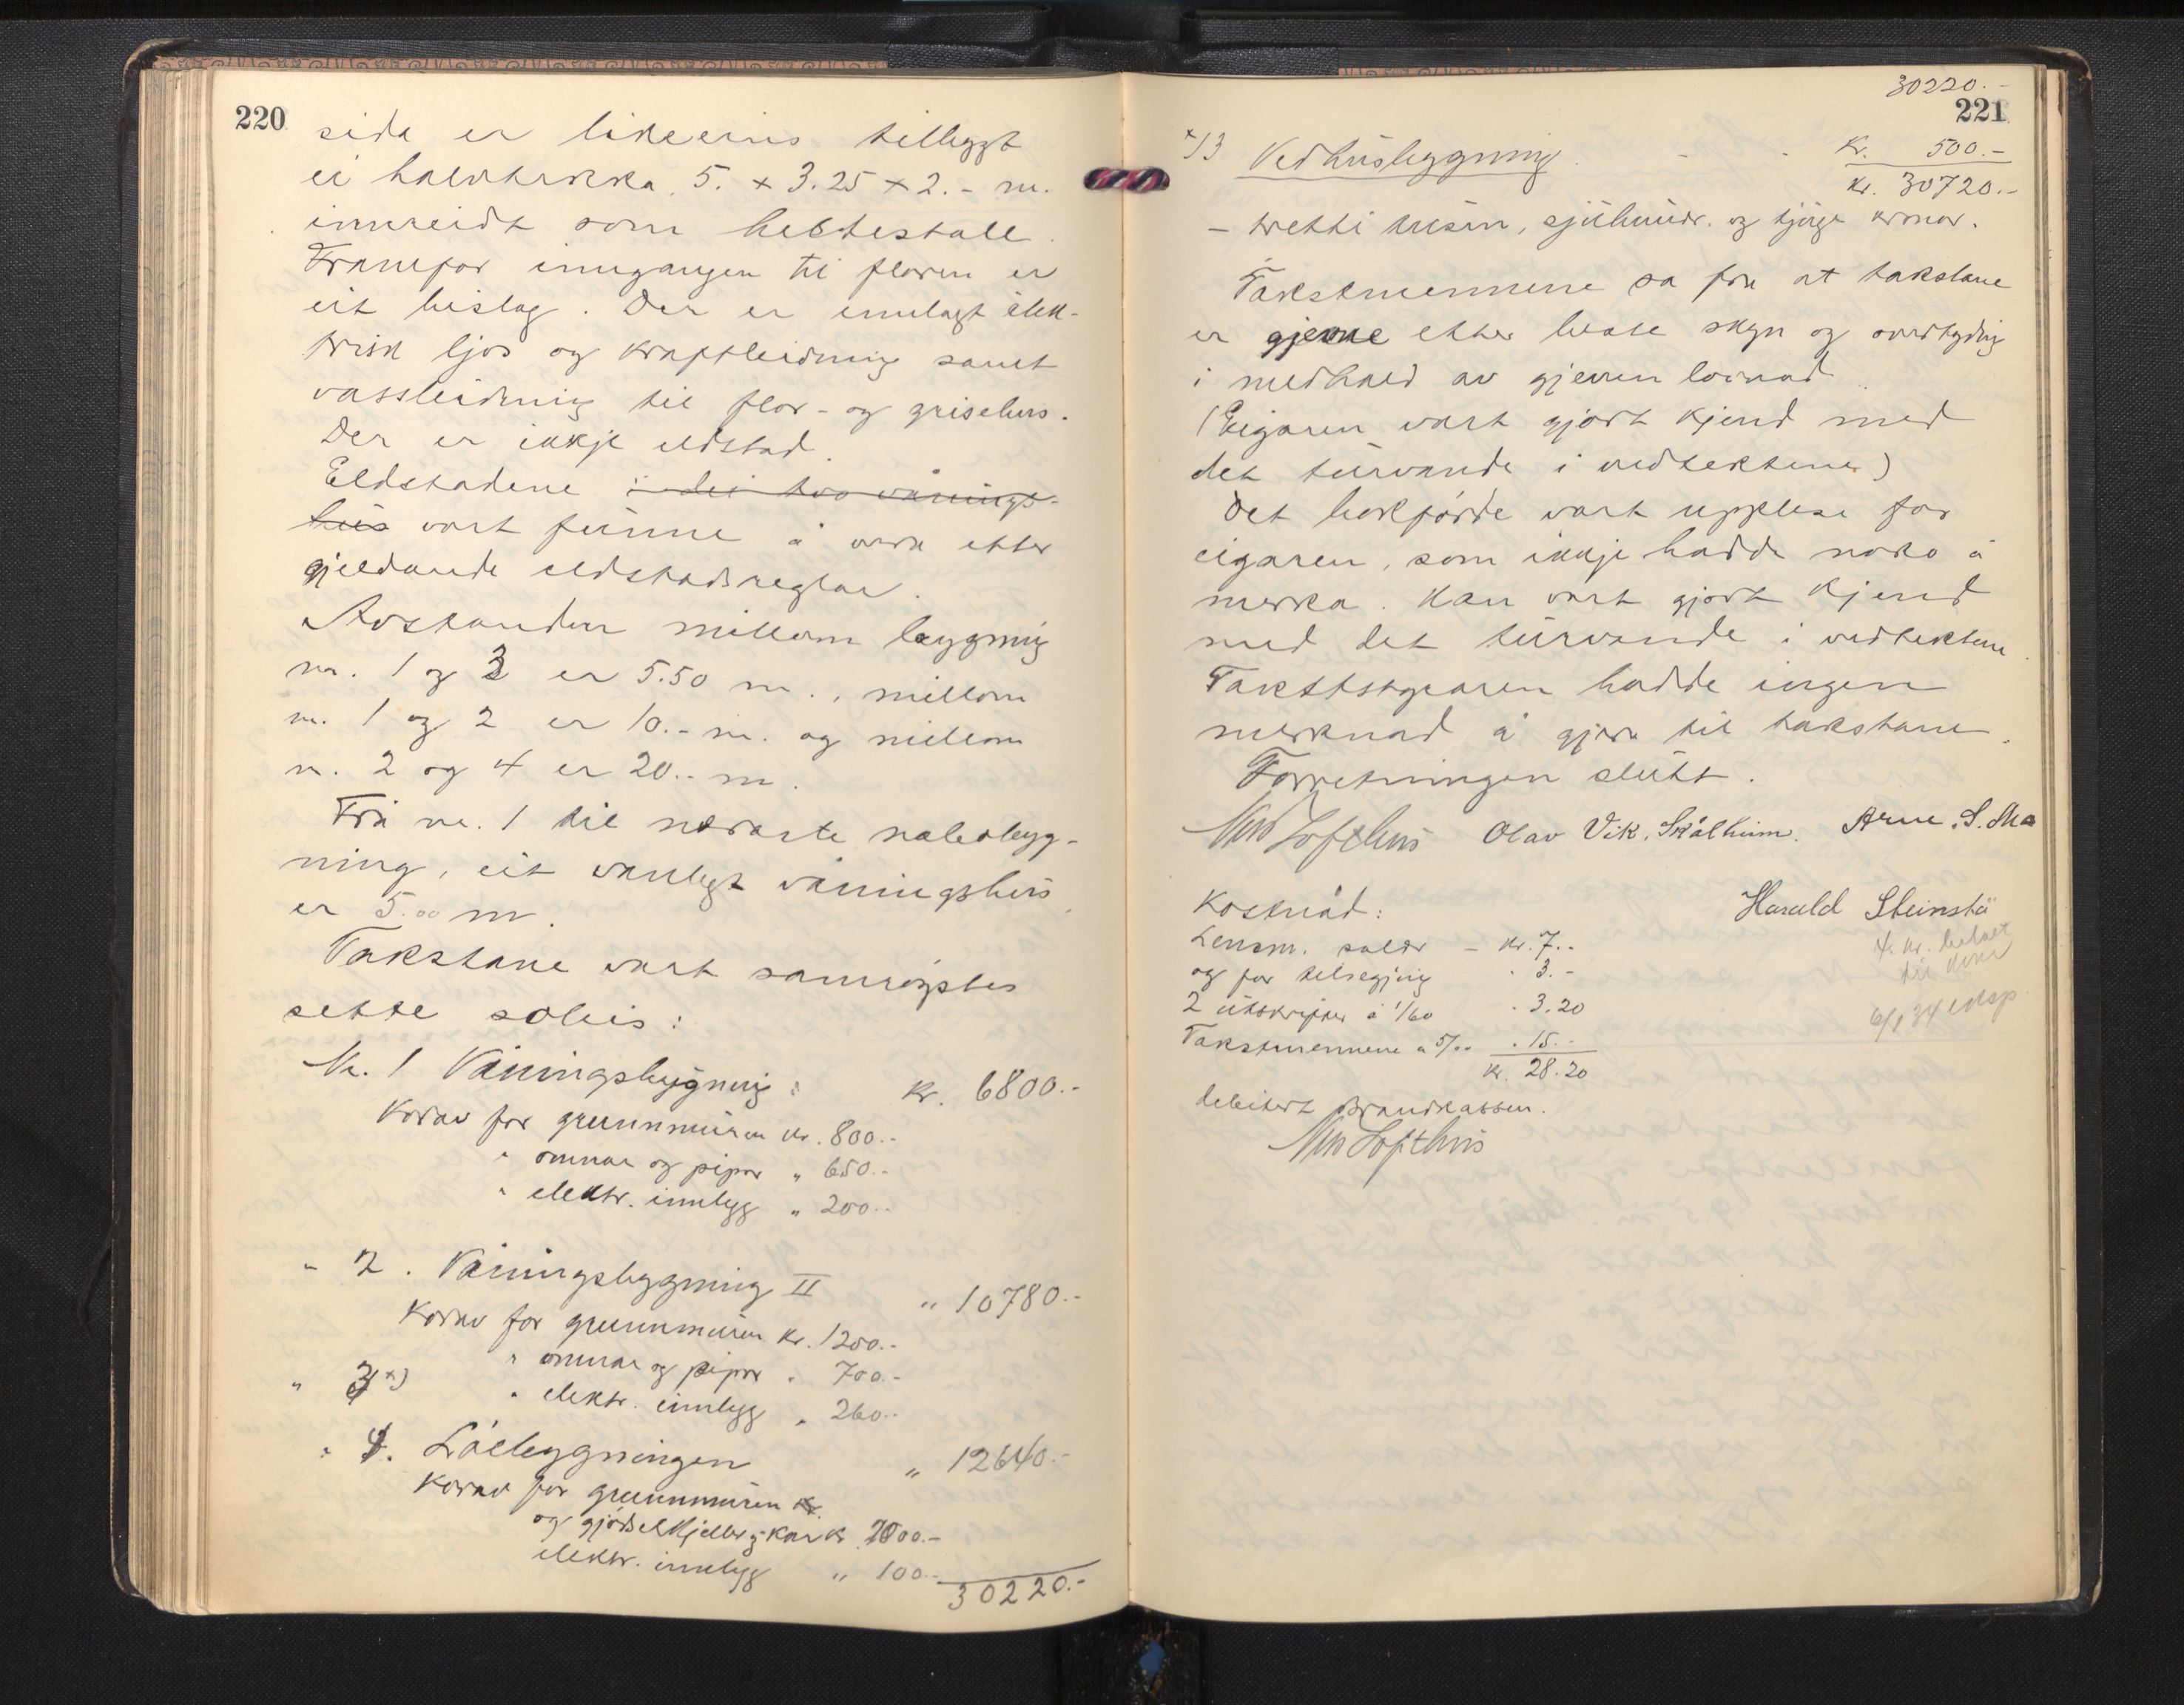 220
sida er likeeins tilbyggt
ei halvtekka 5. x 3.25 x 2.- m.
innreidt som hestestall.
Framfor inngangen til floren er
eit bislag. Der er innlagt elek-
trisk ljos og kraftleidning samt
vassleidning til flor- og grisehus.
Der er ikkje eldstad.
Eldstadene i dei two vånings-
hus vart funne å vera etter
gjeldande eldstadsreglar.
Avstanden millom bygning
nr. 1 og 3 er 5.50 m., millom
nr. 1 og 2 er 10.- m. og millom
nr. 2 og 4 er 20.- m.
Frå nr. 1 til næraste nabobygg-
ning, eit vanlegt våningshus,
er 5.00 m.
Takstane vart samrøystes
sette soleis:
Nr. 1 Våningsbygning: kr. 6800.-
Korav for grunnmuren kr. 800.-
" omnar og pipor " 650.-
" elektr. innlegg " 200.-
" 2. Våningsbygning II " 10780.-
Korav for grunnmuren kr. 1200.-
" omnar og pipor " 700.-
" 3 x)
" elektr. innlegg " 260.-
" 4. Löebygningen " 12640.-
Korav for grunnmuren kr.
og gjödselkjeller og kar kr. 2000.-
elektr. innlegg " 100.-
30220.-
30220.-
221
x) 3 Vedhusbygning - - kr. 500.-
kr. 30720.-
- tretti tusin, sjühundr. og tjuge kronor.
Takstmennene sa fra at takstane
er gjevne etter beste skyn og overtyding
i medhald av gjeven lovnad.
(Eigaren vart gjort kjend med
det turvande i vedtektene)
Det bokførde vart upplese for
eigaren, som ikkje hadde noko å
merka. Han vart gjort kjend
med det turvande i vedtektene.
Takststyraren hadde ingen
merknad å gjera til takstane.
Forretningen slutt.
Lofthus Olav Vik, Skålheim. Arne S. Mo
Harald Steinstø
Kostnad:
Lensm. salær - kr. 7.-
og for tilsegjing " 3.-
2 utskrifter à 1/60 " 3.20
Takstmennene à 5/00 " 15.-
kr. 28.20
4 kr. betalt
debitert Brandkassen.
Lofthus